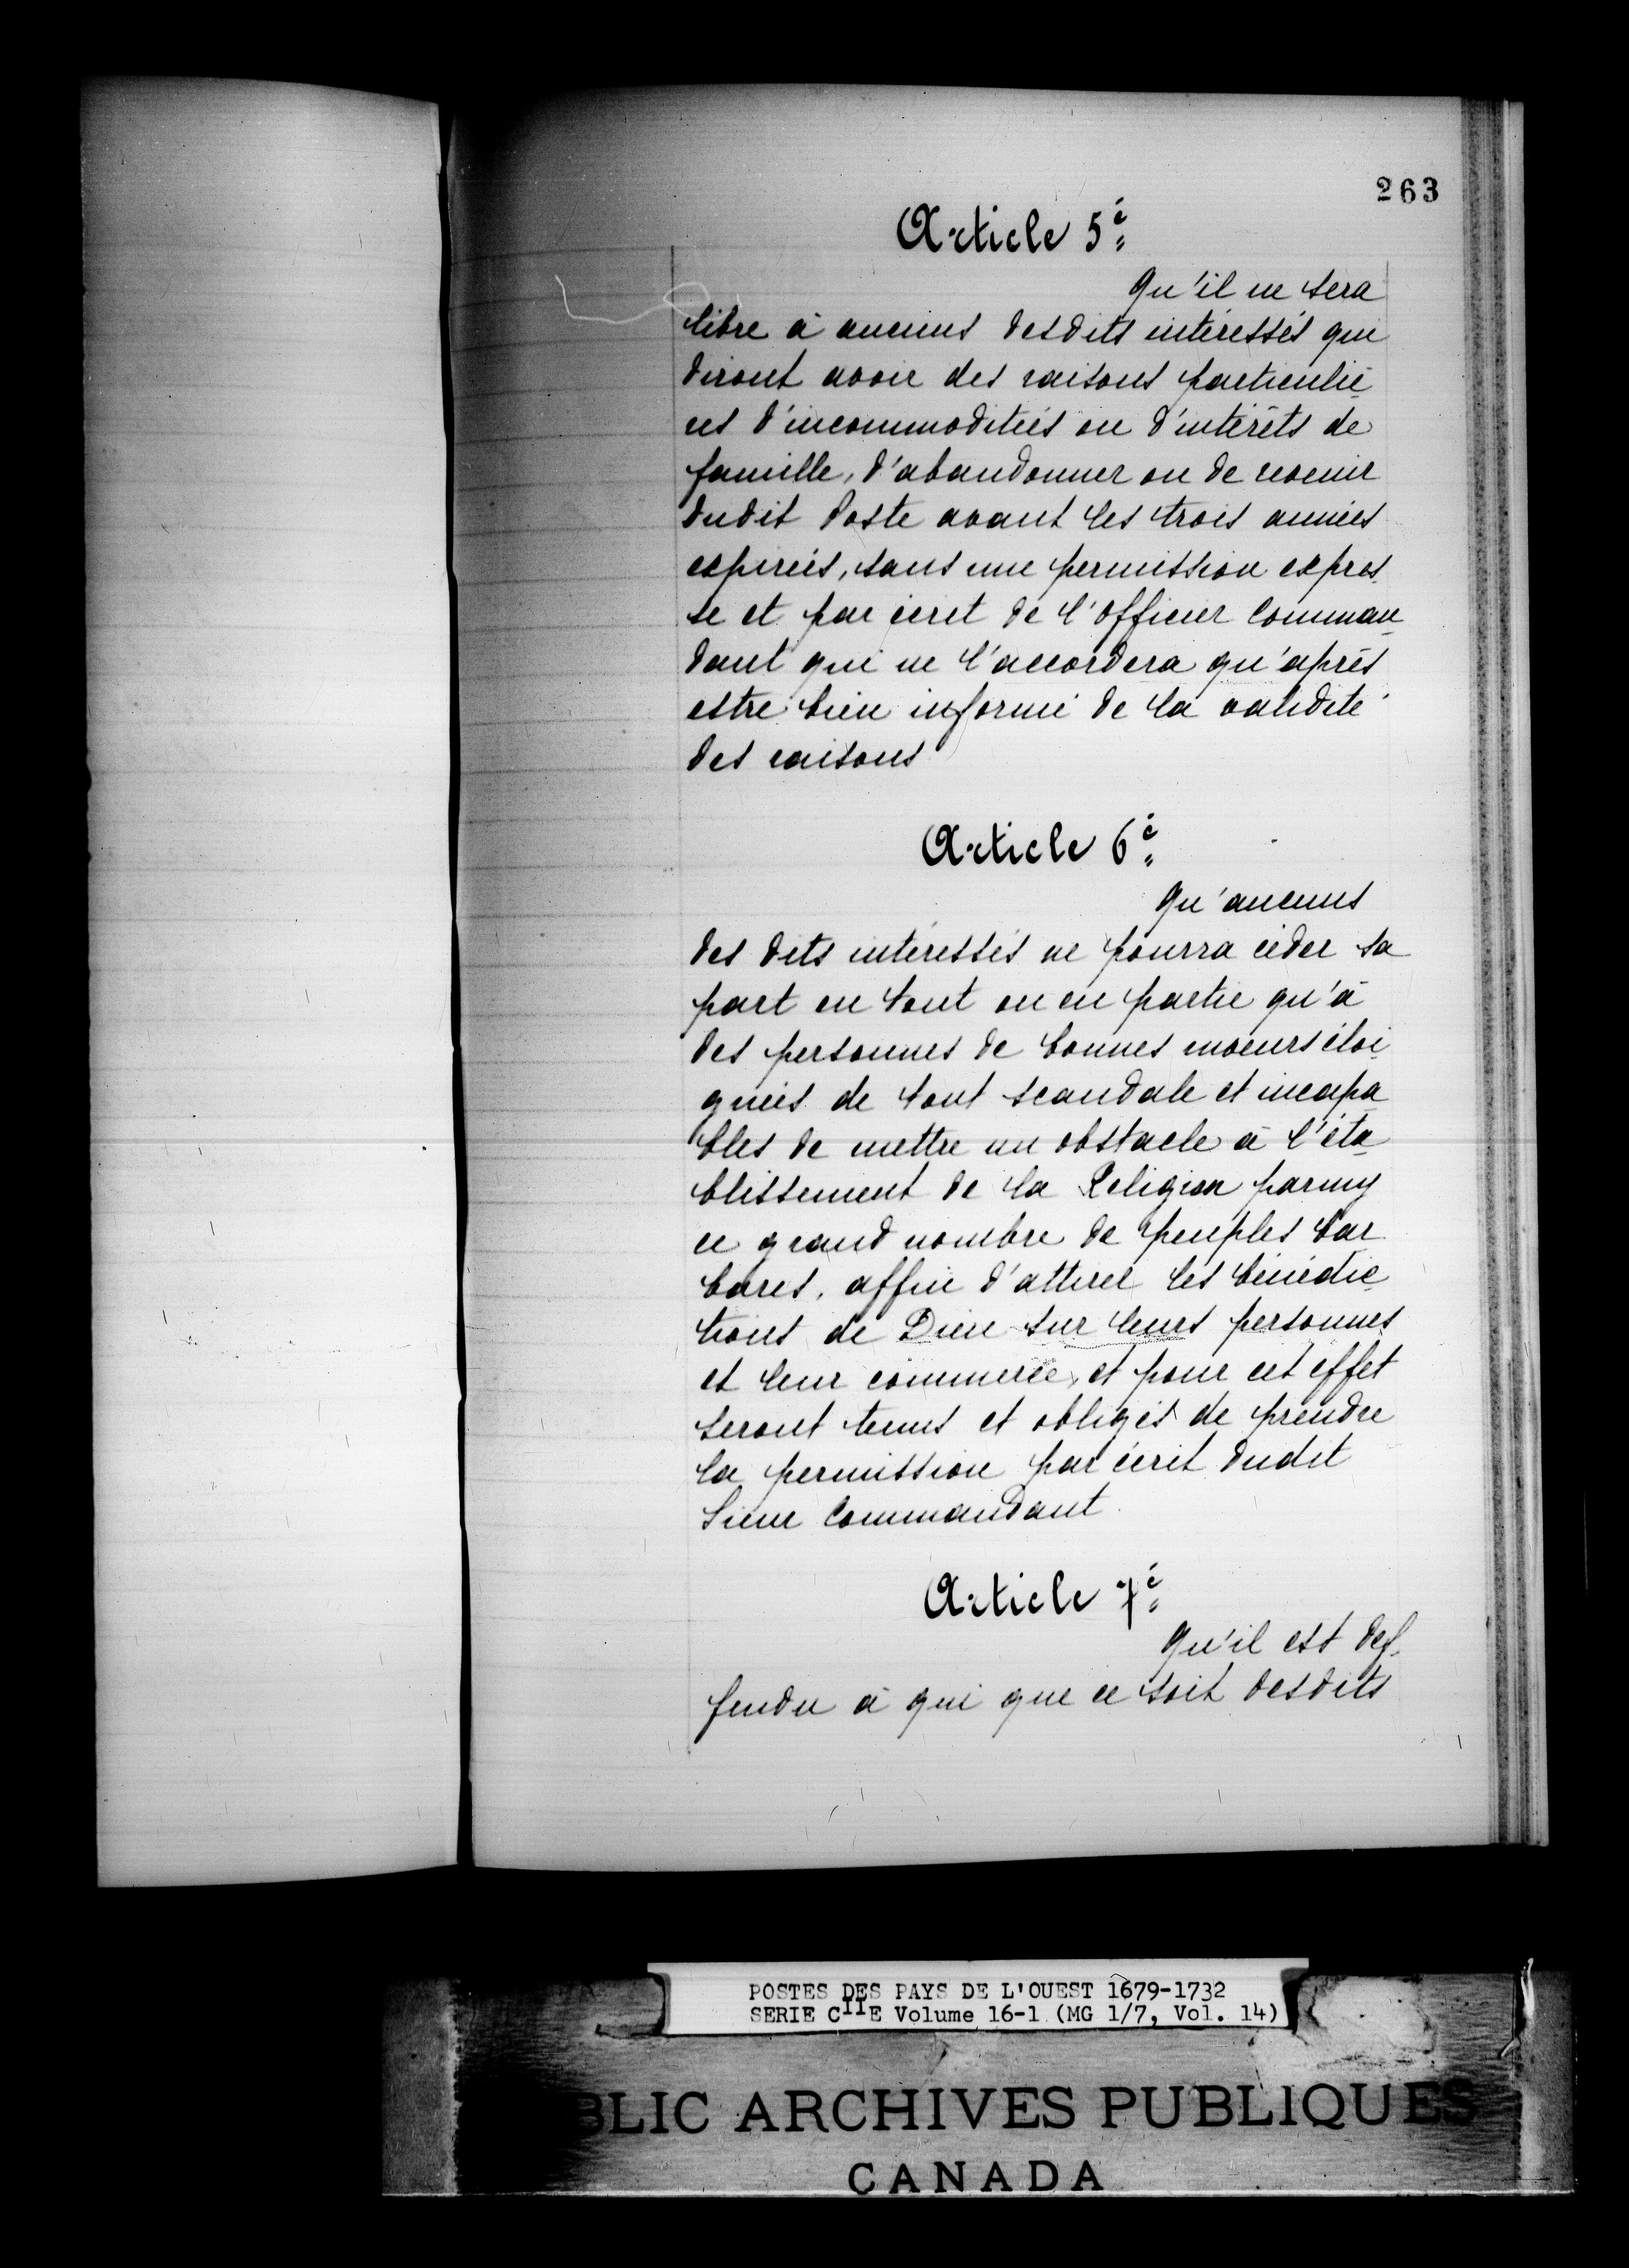 263
Article 5è
Qu'il ne sera
libre à aucuns desdits intéressés qui
diront avoir des raisons particuliè
res d'incommoditeés ou d'intérêts de
famille, d'abandonner ou de revenir
dudit Poste avant les trois années
expireés, sans une permission expres
se et par écrit de l'Officier Comman
dant qui ne l'accordera qu'après
estre bien informé de la validité
des raisons
Article 6è
Qu'aucuns
des dits intéressés ne pourra céder sa
part en tout ou en partie qu'à
des personnes de bonnes moeurs éloi
gneés de tout scandale et incapa
bles de mettre un obstacle à l'éta
blissement de la Religion parmy
ce grand nombre de peuples bar
bares, affin d'attirer les bénédic
tions de Dieu sur leurs personnes
et leur commerce, et pour cet effet
seront tenus et obligés de prendre
la permission par écrit dudit
Sieur Commandant.
Article 7è
Qu'il est def
fendu à qui que ce soit desdits
POSTES DES PAYS DE L'OUEST 1679-1732
SERIE CIIE Volume 16-1 (MG 1/7, Vol. 14)
BLIC ARCHIVES PUBLIQUES
CANADA